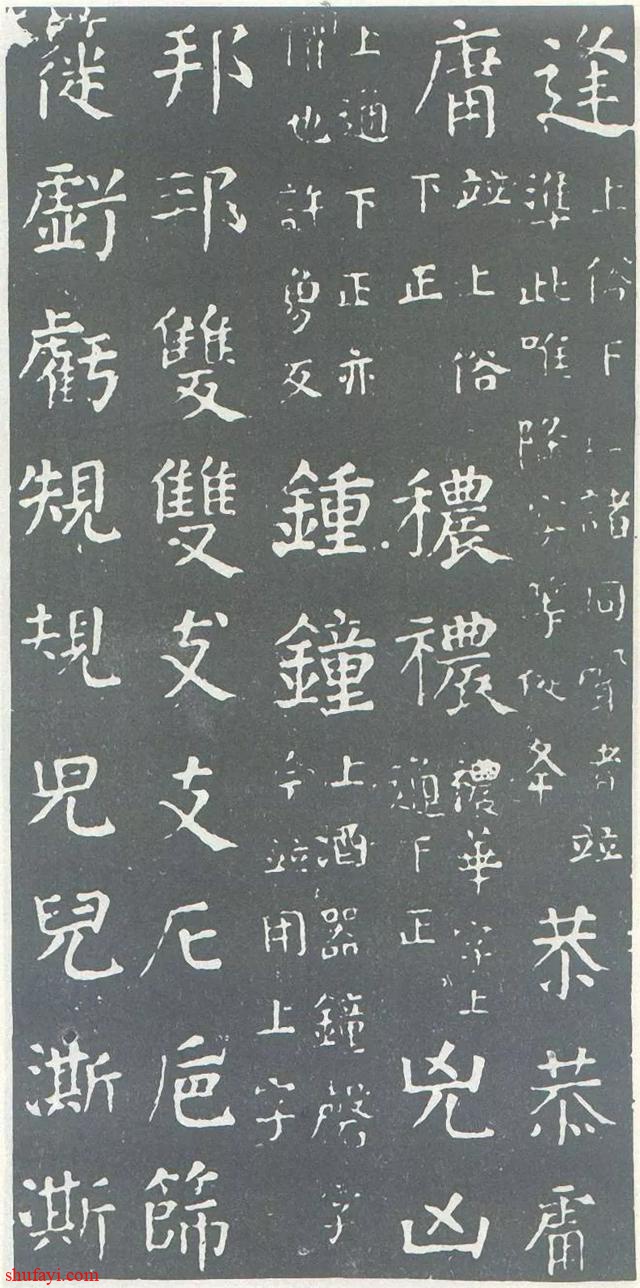 逢 上俗下正諸同聲者並 準此唯除字等從夅 恭 恭 㽩
庸 並上俗 下正 穠 禯 禯華字上 通下正 兇 凶
上通下正亦 懼也許勇反 鍾 鐘 上酒器鐘磬字 今並用上字
邦 邦 雙 雙 支 支 卮 巵 篩
簁 虧 虧 規 規 兒 兒 澌 澌
shufayi.com